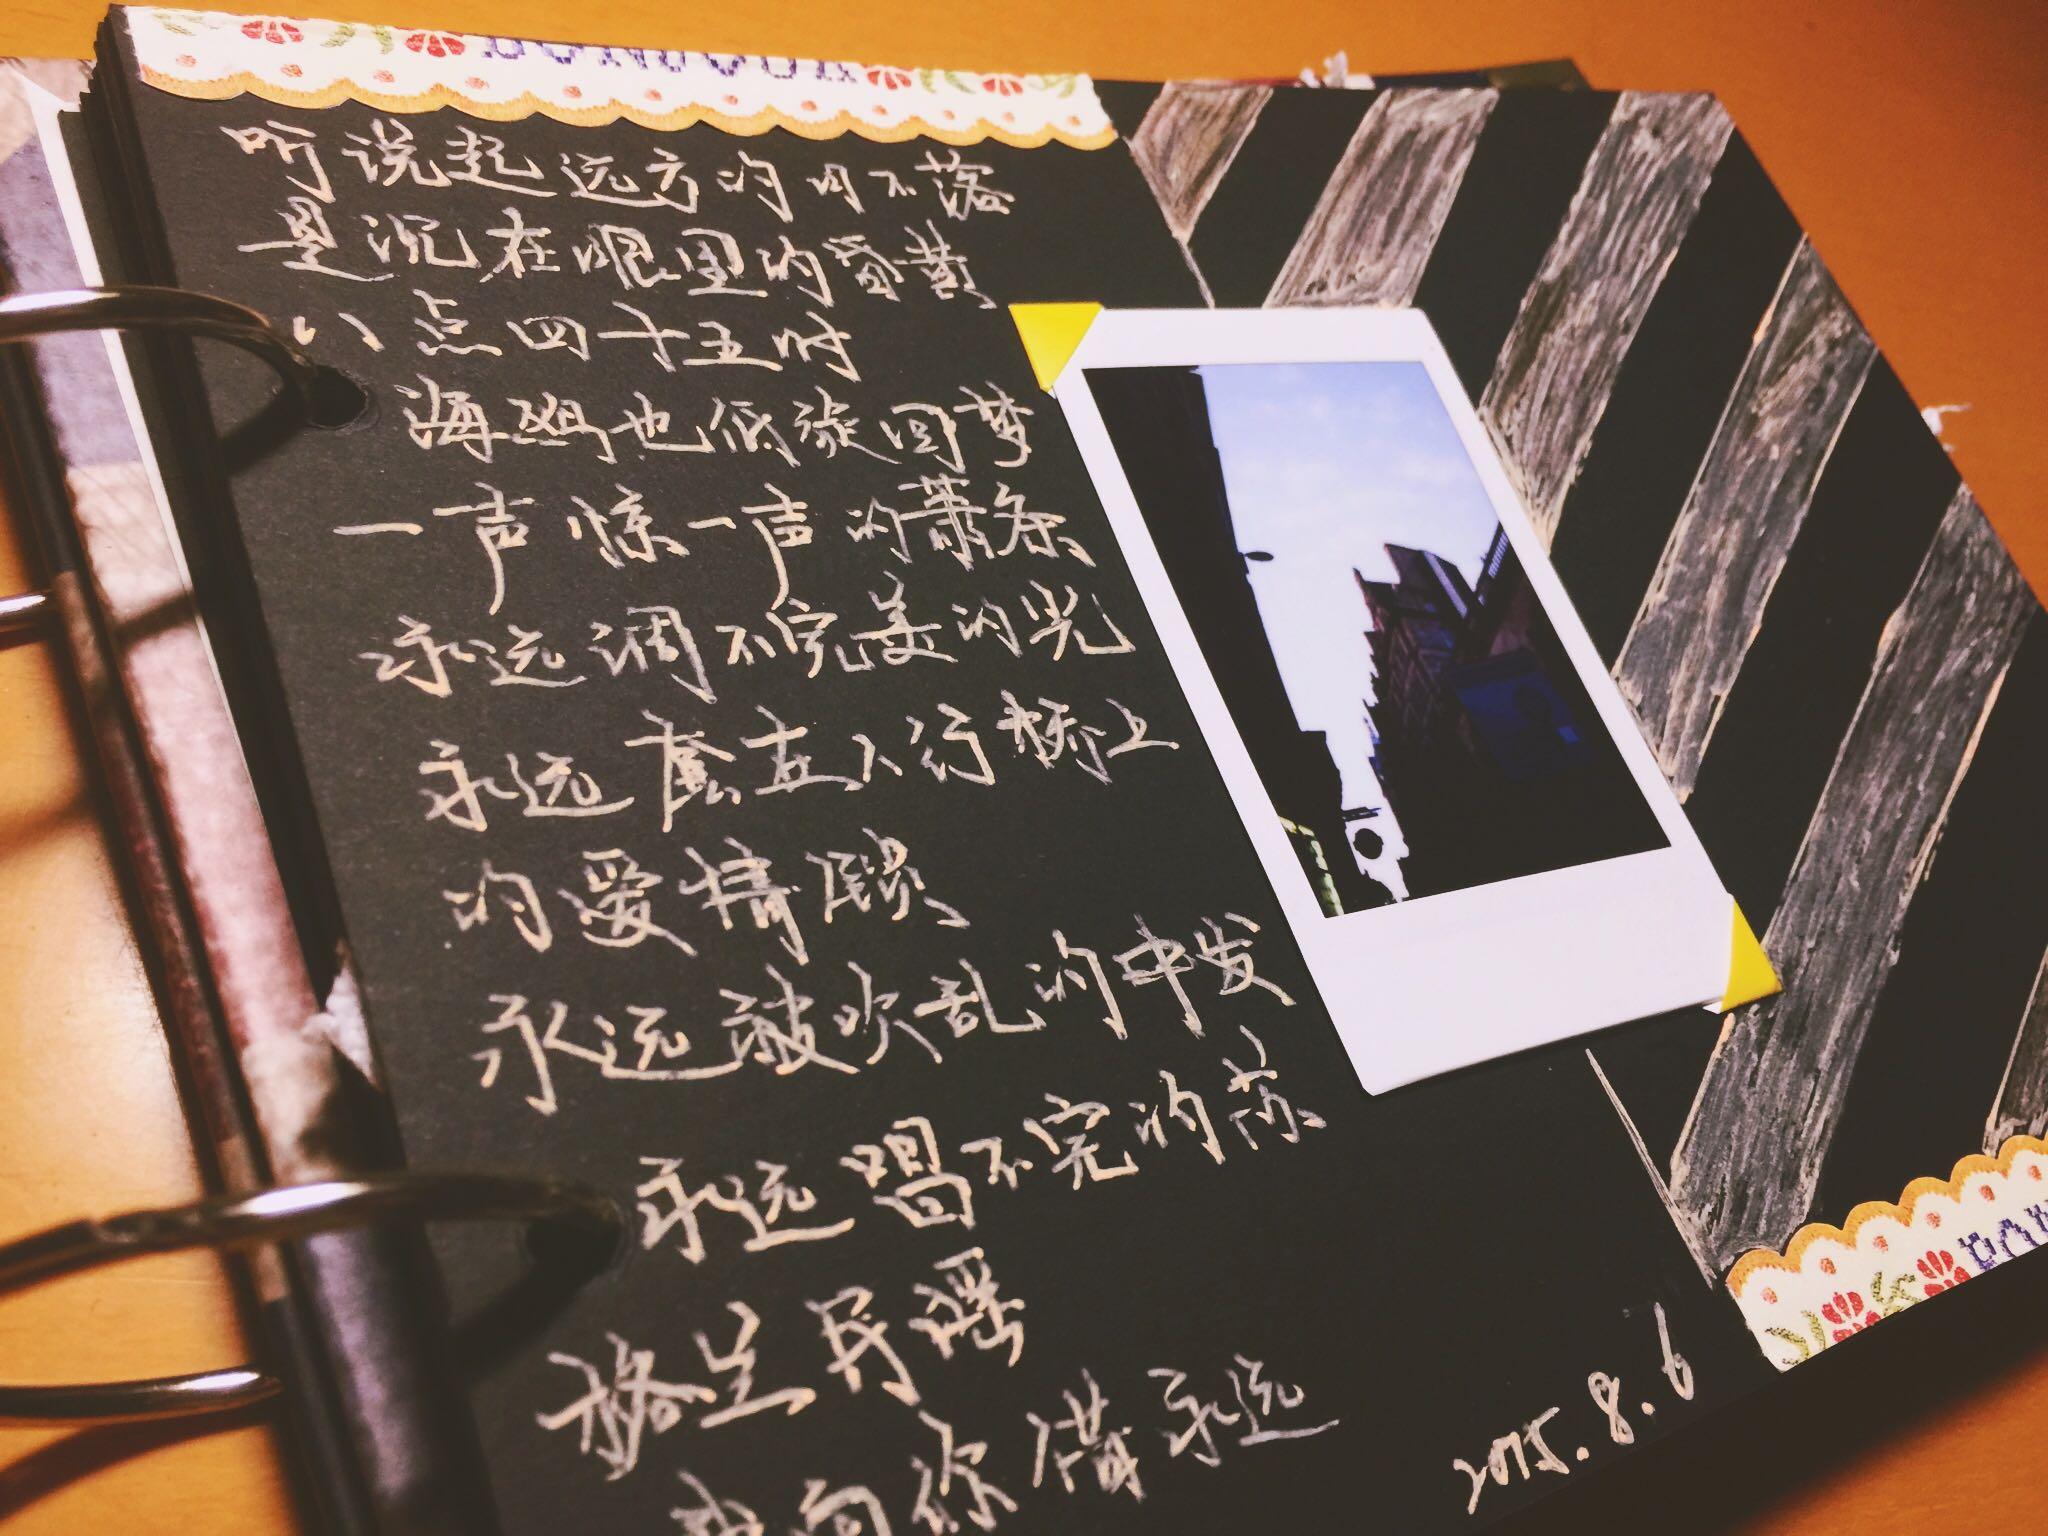 BONJOUR
听说起远方的日不落
是沉在眼里的昏黄
八点四十五时
海鸥也低旋回梦
一声惊一声的萧条
永远调不完美的光
永远套在人行桥上
的爱情锁
永远被吹乱的中发
永远唱不完的苏
格兰民谣
我向你借永远
2015.8.6